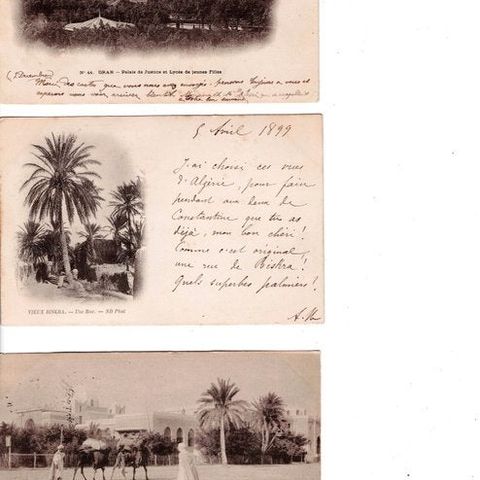 N° 44. ORAN — Palais de Justice et Lycée de jeunes Filles
Merci des cartes que vous nous avez envoyé. pensons toujours à vous et
espérons vous voir arriver bientôt
5 Avril 1899
J'ai choisi ces vues
d'Algérie, pour faire
pendant aux deux de
Constantine que tu as
déjà, mon bon chéri!
Comme c'est original
une rue de Biskra!
Quels superbes palmiers!
VIEUX BISKRA. — Une Rue. — ND Phot